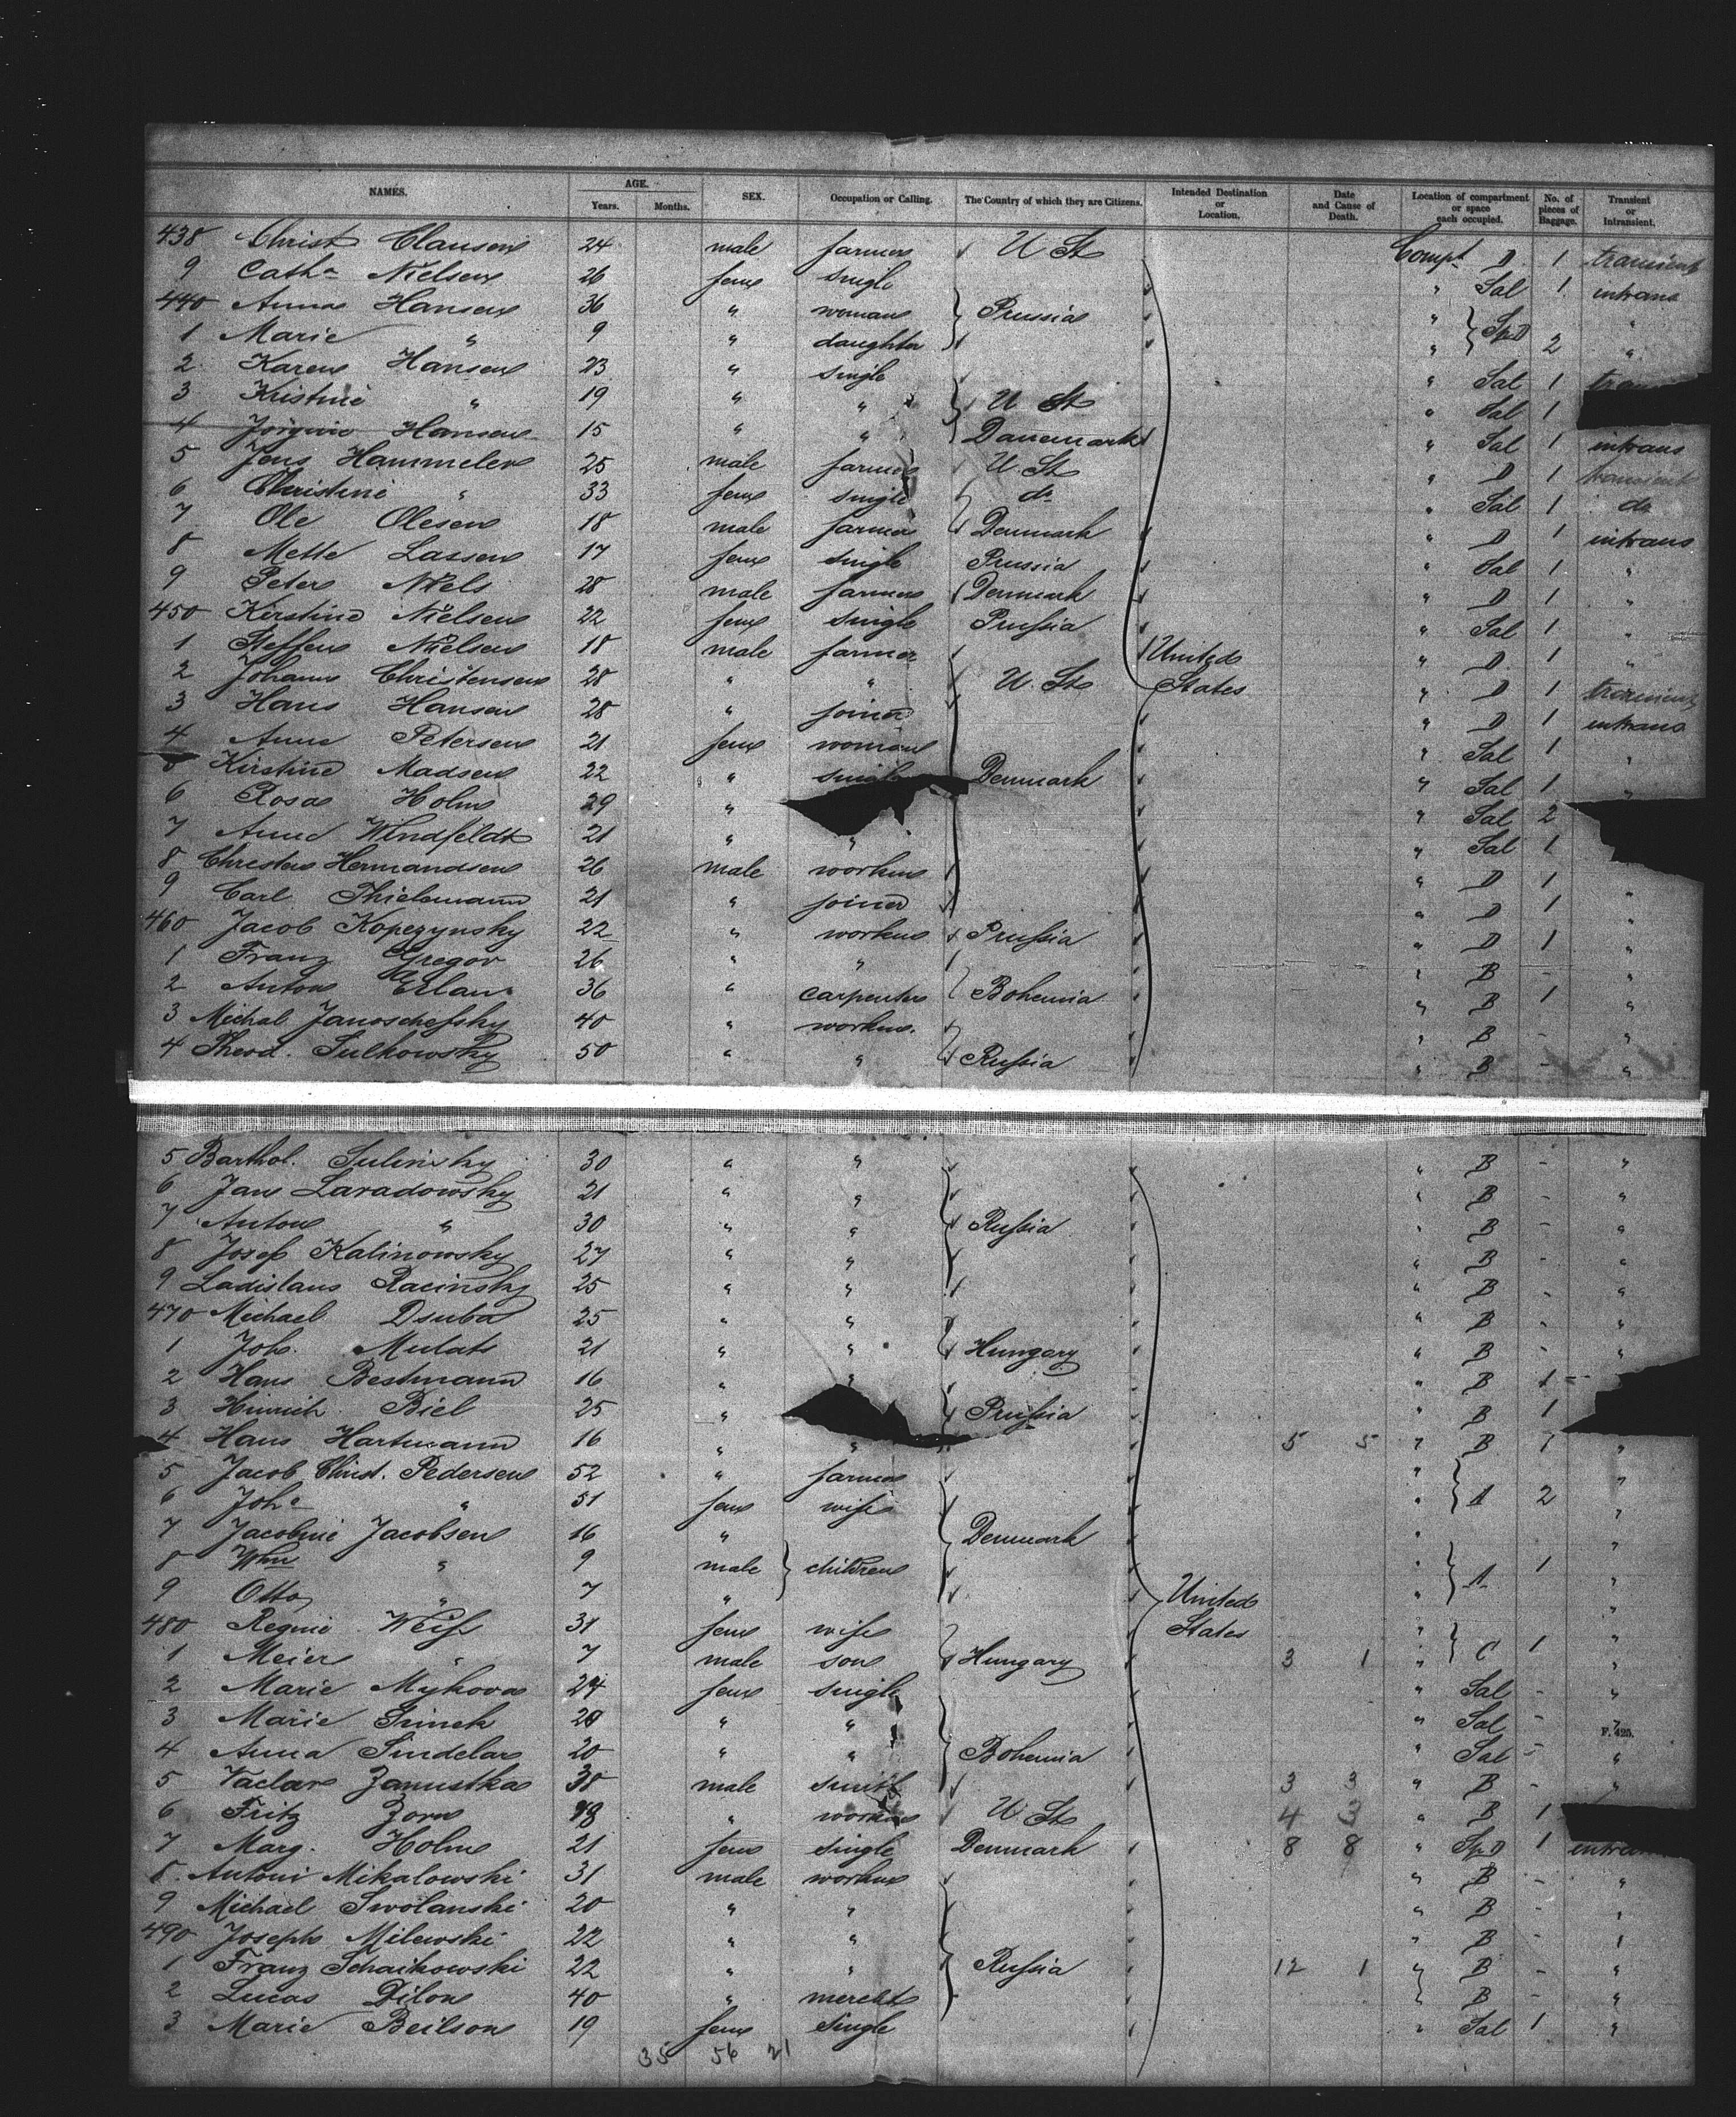 NAMES. AGE. Years. Months. SEX. Occupation or Calling. The Country of which they are Citizens. Intended Destination or Location. Date and Cause of Death. Location of compartment or space each occupied. No. of pieces of Baggage. Transient or Intransient.
438 Christ Clausen 24 male farmer U St Compt D 1 transient
9 Cath a Nielsen 26 fem single " Sal 1 intrans
440 Anna Hansen 36 " woman Prussia " Sp.D "
1 Marie " 9 " daughter " 2 "
2 Karen Hansen 23 " single " Sal 1
3 Kristine " 19 " " U St " Sal 1
4 Jörgine Hansen 15 " " Danemark " Sal 1 intrans
5 Jens Hammelev 25 male farmer U. St " D 1 transient
6 Christine " 33 fem single do " Sal 1 do
7 Ole Olesen 18 male farmer Denmark " D 1 intrans
8 Mette Lassen 17 fem single Prussia " Sal 1 "
9 Peter Niels 28 male farmer Denmark " D 1 "
450 Kirstine Nielsen 22 fem single Prussia " Sal 1 "
1 Steffen Nielsen 18 male farmer United " D 1 "
2 Johann Christensen 28 " " U. St States " D 1 transient
3 Hans Hansen 28 " joiner " D 1 intrans
4 Anne Petersen 21 fem woman " Sal 1 "
Kirstine Madsen 22 " single Denmark " Sal 1 "
6 Rosa Holm 29 " " Sal 2
7 Anne Windfeldt 21 " " " Sal 1
8 Christen Hermandsen 26 male workm " D 1
9 Carl Thielemann 21 " joiner " D 1 "
460 Jacob Kopczynsky 22 " workm Prussia " D 1 "
1 Franz Gregor 26 " " " B - "
2 Anton 36 " carpenter Bohemia " B 1 "
3 Michal Janoschefsky 40 " workm. " B - "
4 Theod. Sulkowsky 50 " " Russia " B - "
5 Barthol. 30 " " " B - "
6 Jan Laradowsky 21 " " " B - "
7 Anton " 30 " " Russia " B - "
8 Josef Kalinowsky 27 " " " B - "
9 Ladislaus Racinsky 25 " " " B - "
470 Michael Dsuba 25 " " " B - "
1 Joh. Mulats 21 " " Hungary " B - "
2 Hans Bestmann 16 " " " B 1
3 Hinrich Biel 25 " Prussia " B 1
4 Hans Hartmann 16 " " 5 5 " B 1 "
5 Jacob Christ. Pedersen 52 " farmer " "
6 Joh a " 51 fem wife " A 2 "
7 Jacobine Jacobsen 16 " Denmark " "
8 Wm " 9 male children " A 1 "
9 Otto " 7 " United " "
480 Regine Weiss 31 fem wife States " "
1 Meier " 7 male son Hungary 3 1 " C 1 "
2 Marie Mykova 24 fem single " Sal - "
3 Marie 20 " " " Sal - " F. 425.
4 Anna Sindelar 20 " " Bohemia " Sal - "
5 Vaclav Zanustka 38 male smith 3 3 " B - "
6 Fritz Zorn 18 " workm U St 4 3 " B 1
7 Marg. Holm 21 fem single Denmark 8 8 " Sp.D 1 intrans
8 Antoni Mikalowski 31 male workm " B - "
9 Michael Swolanski 20 " " " B - "
490 Joseph Milewski 22 " " " B - "
1 Franz Schaikowski 22 " " Russia 12 1 " B - "
2 Lucas Dilon 40 " mercht " B - "
3 Marie Beilson 19 fem single " Sal 1 "
35 56 21